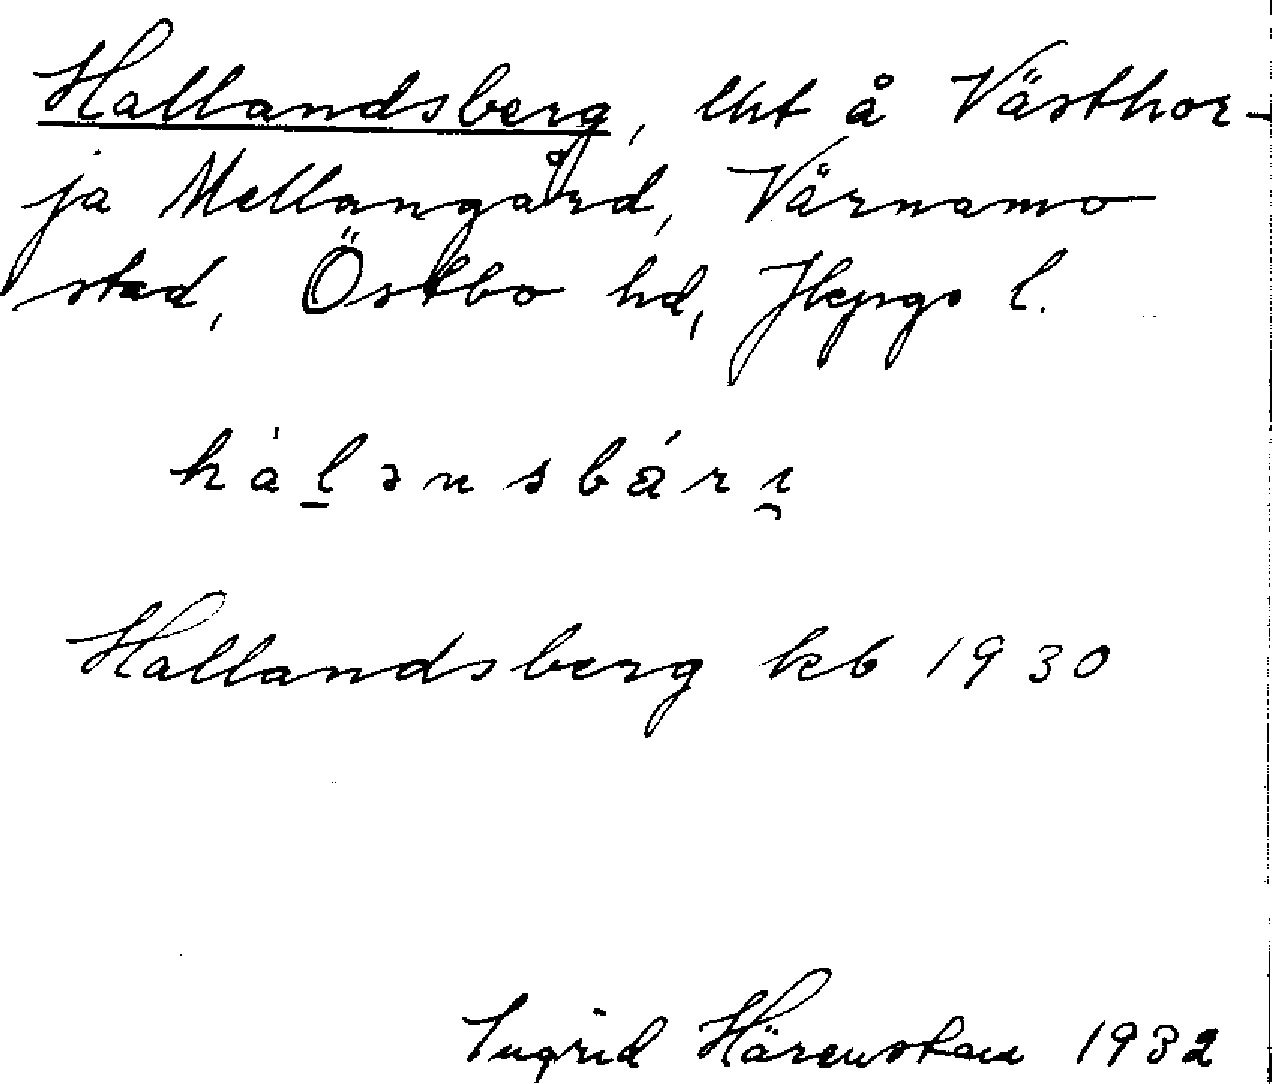 Hallandsberg, lht å Västhor-
ja Mellangård, Värnamo
stad, Östbo hd, Jkpgs l.
hàl̲ənsbárɪ̯
Hallandsberg kb 1930
Ingrid Härenstam 1932